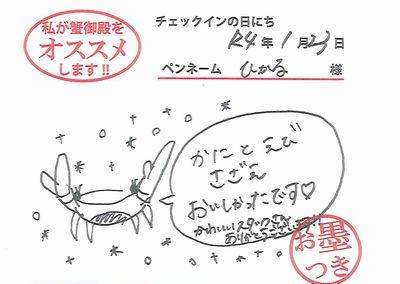 私が蟹御殿を
オススメ
します!!
チェックインの日にち
R4年1月23日
ペンネーム ひかる 様
かにとえび
さざえ
おいしかったです♡
かわいいスタッフさん
ありがとうございます!!
お墨
つき